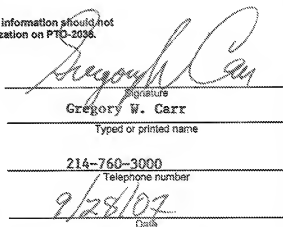 information should not
zation on PTO-2038.
Gregory W. Carr
Signature
Gregory W. Carr
Typed or printed name
214-760-3000
Telephone number
9/28/07
Date